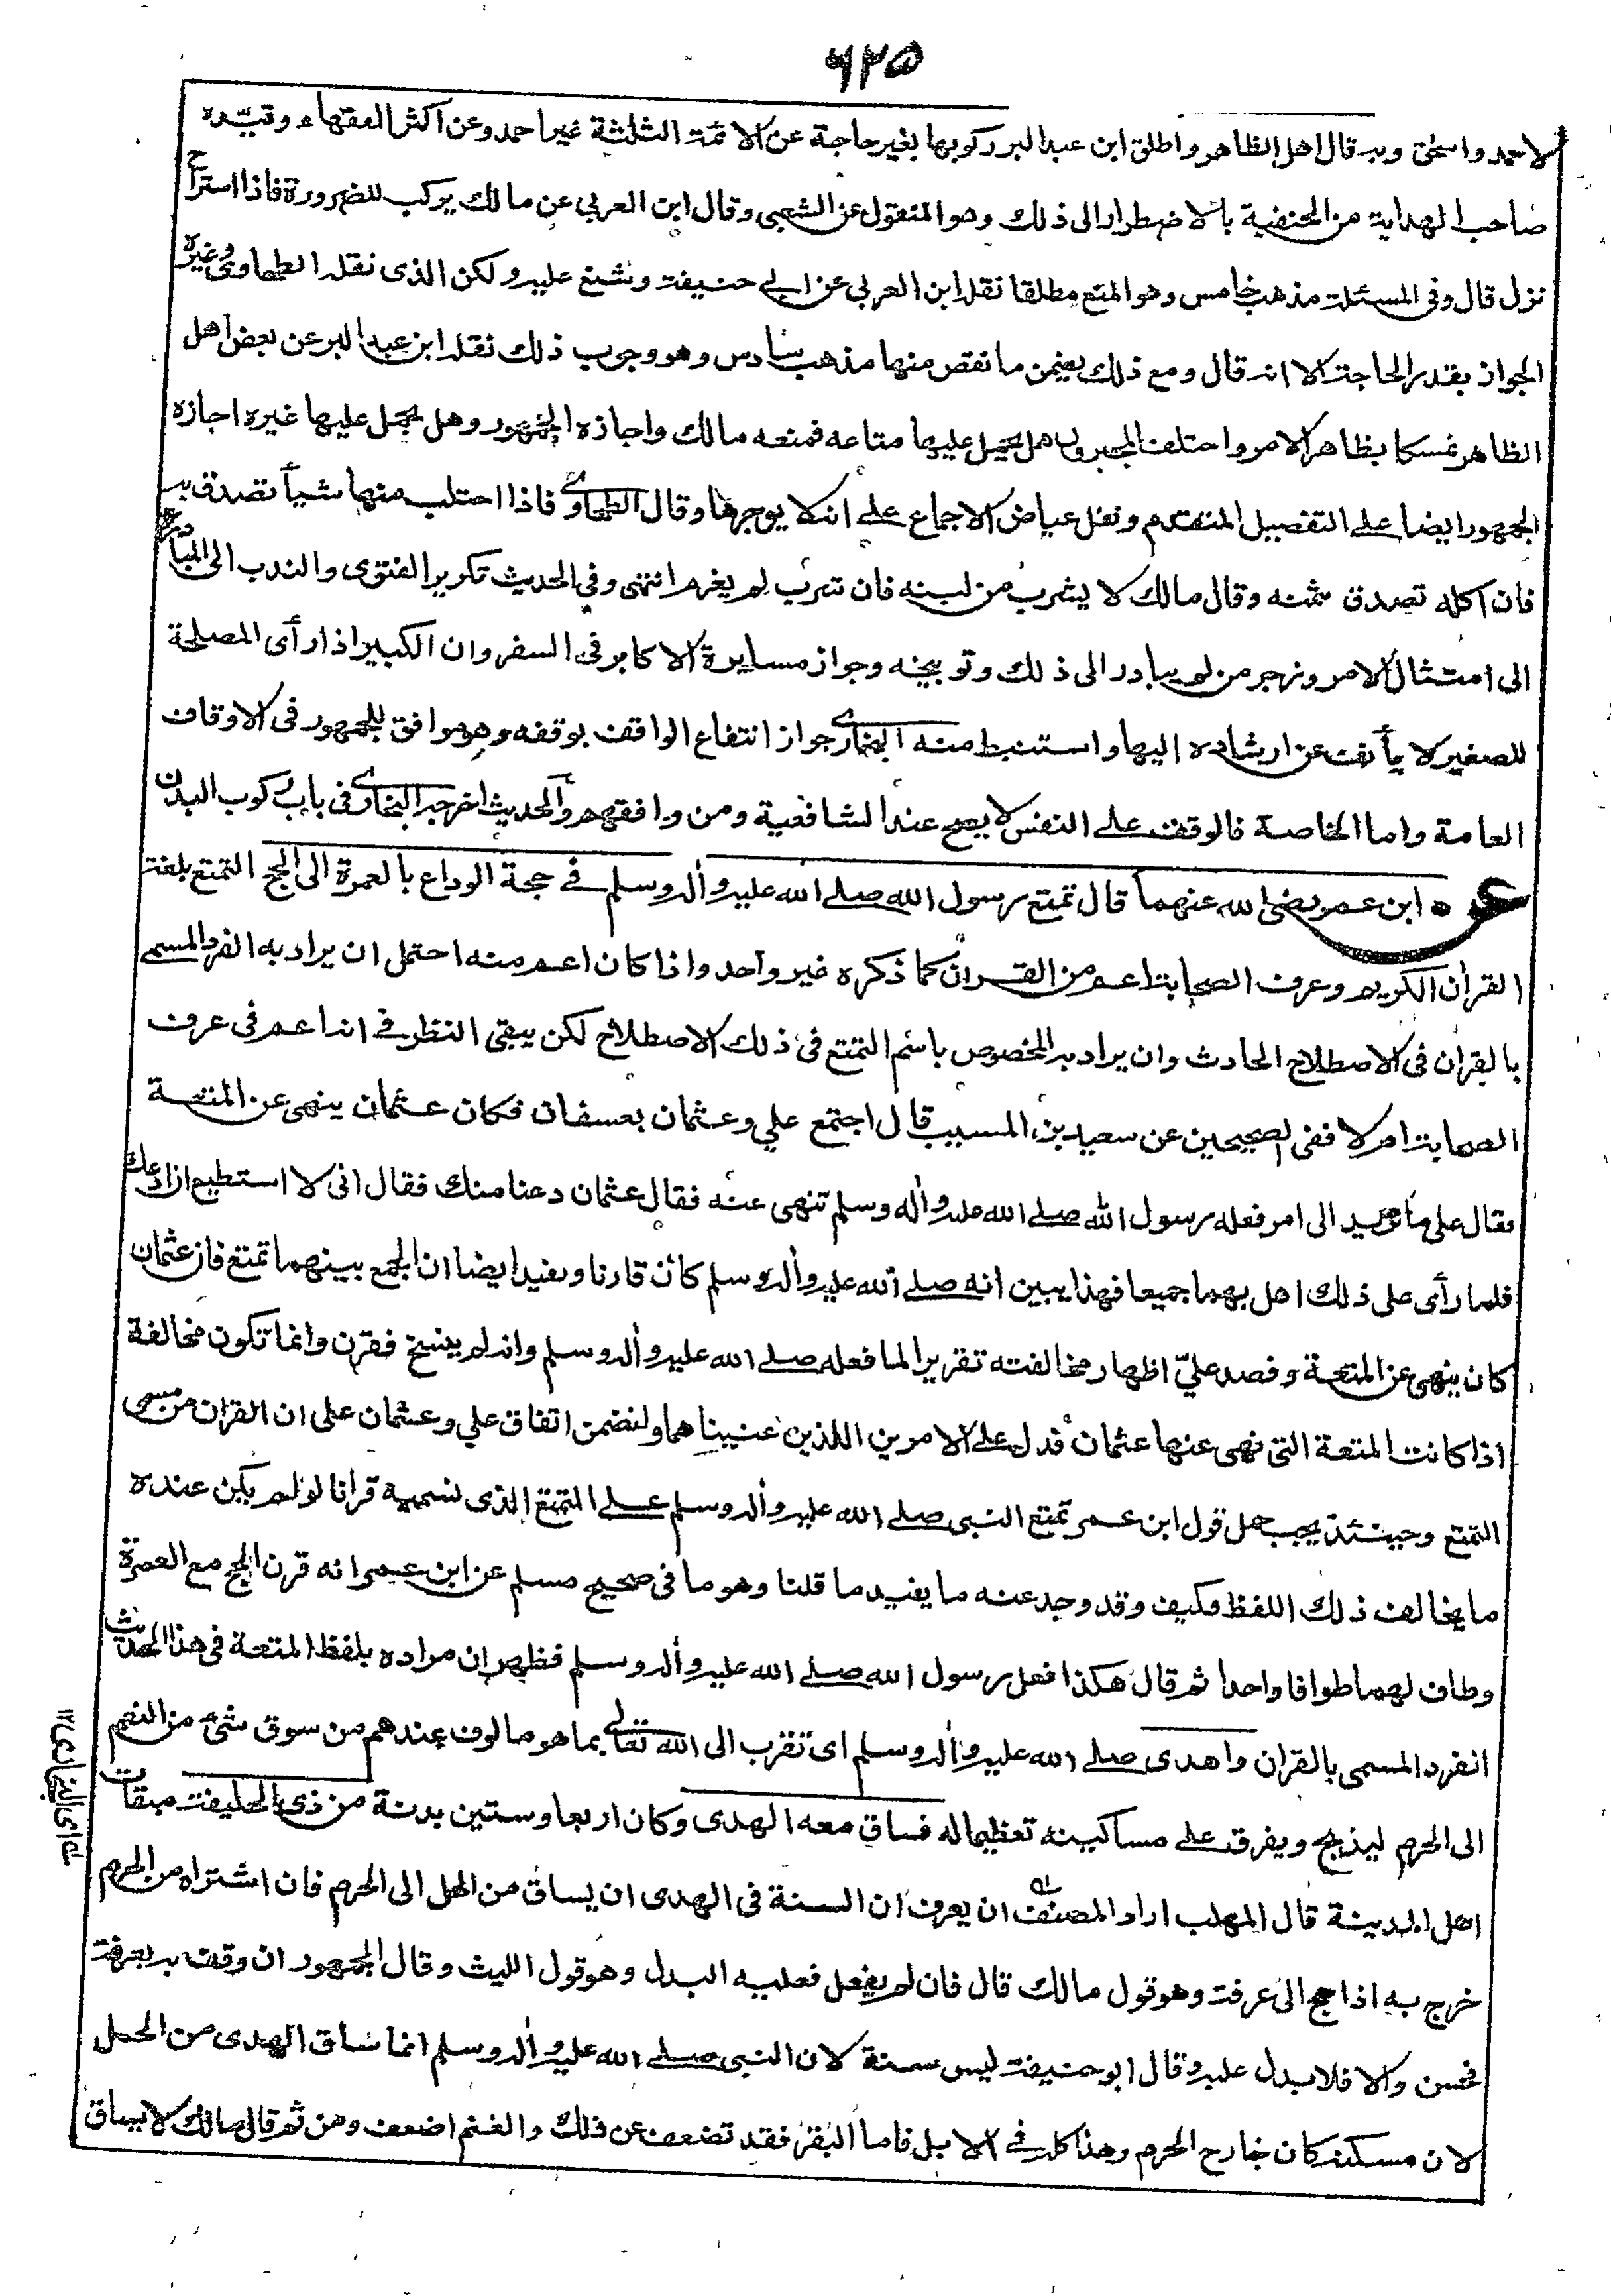 ٦٢٥
لاحمد واسحق وبه قال اهل الظاهر واطلق ابن عبد البر ركوبها بغير حاجة عن الائمة الثلثة غير احمد وعن اكثر الفقهاء وقيّده
صاحب الهداية من الحنفية بالاضطرار الى ذلك وهو المنقول عن الشعبي وقال ابن العربي عن مالك يركب للضرورة فاذا استراح
نزل قال وفى المسئلة مذهب خامس وهو المنع مطلقا نقله ابن العربي عن ابي حنيفة وشنع عليه ولكن الذى نقله الطحاوى وغيره
الجواز بقدر الحاجة الا انه قال ومع ذلك يضمن ما نقص منها مذهب سادس وهو وجوب ذلك نقله ابن عبد البر عن بعض اهل
الظاهر تمسكا بظاهر الامر واختلف المجبرون هل يحمل عليها متاعه فمنعه مالك واجازه الجمهور وهل يحمل عليها غيره اجازه
الجمهور ايضا على التفصيل المتقدم ونقل عياض الاجماع على انه لا يوجرها وقال الطحاوى فاذا احتلب منها شيأ تصدق به
فان اكله تصدق بثمنه وقال مالك لا يشرب من لبنه فان شرب لم يغرم انتهى وفى الحديث تكرير الفتوى والندب الى المبادرة
الى امتثال الامر وزجر من لم يبادر الى ذلك وتوبيخه وجواز مسايرة الاكابر فى السفر وان الكبير اذا رأى المصلحة
للصغير لا يأنف عن ارشاده اليها واستنبط منه البخارى جواز انتفاع الواقف بوقفه وهو موافق للجمهور فى الاوقاف
العامة واما الخاصة فالوقف على النفس لا يصح عند الشافعية ومن وافقهم والحديث اخرجه البخارى فى باب ركوب البدن
ابن عمر رضى الله عنهما قال تمتع رسول الله صلى الله عليه وأله وسلم فى حجة الوداع بالعمرة الى الحج التمتع بلغة
القرأن الكريم وعرف الصحابة اعم من القران كما ذكره غير واحد واذا كان اعم منه احتمل ان يراد به الفرد المسمى
بالقران فى الاصطلاح الحادث وان يراد به المخصوص باسم التمتع فى ذلك الاصطلاح لكن يبقى النظر فى انه اعم فى عرف
الصحابة ام لا ففى الصحيحين عن سعيد بن المسيب قال اجتمع علي وعثمان بعسفان فكان عثمان ينهى عن المتعة
فقال على ما تريد الى امر فعله رسول الله صلى الله عليه وأله وسلم تنهى عنه فقال عثمان دعنا منك فقال انى لا استطيع ان ادعك
فلما رأى على ذلك اهل بهما جميعا فهذا يبين انه صلى الله عليه وأله وسلم كان قارنا ويفيد ايضا ان الجمع بينهما تمتع فان عثمان
كان ينهى عن المتعة وقصد عليّ اظهار مخالفته تقريرا لما فعله صلى الله عليه وأله وسلم وانه لم ينسخ فقرن وانما تكون مخالفة
اذا كانت المتعة التى نهى عنها عثمان فدل على الامرين اللذين عنيناهما ولتضمن اتفاق علي وعثمان على ان القران من مسمى
التمتع وحينئذ يجب حمل قول ابن عمر تمتع النبى صلى الله عليه وأله وسلم على التمتع الذى نسميه قرانا لو لم يكن عنده
ما يخالف ذلك اللفظ فكيف وقد وجد عنه ما يفيد ما قلنا وهو ما فى صحيح مسلم عن ابن عمر انه قرن الحج مع العمرة
وطاف لهما طوافا واحدا ثم قال هكذا فعل رسول الله صلى الله عليه وأله وسلم فظهر ان مراده بلفظ المتعة فى هذا الحديث
انفرد المسمى بالقران واهدى صلى الله عليه وأله وسلم اى تقرب الى الله تعالى بما هو مالوف عندهم من سوق شئ من النعم
الى الحرم ليذبح ويفرق على مساكينه تعظيما له فساق معه الهدى وكان اربعا وستين بدنة من ذى الحليفة ميقات
اهل المدينة قال المهلب اراد المصنف ان يعرف ان السنة فى الهدى ان يساق من الحل الى الحرم فان اشتراه من الحرم
خرج به اذا حج الى عرفة وهو قول مالك قال فان لم يفعل فعليه البدل وهو قول الليث وقال الجمهور ان وقف به بعرفة
فحسن والا فلا بدل عليه وقال ابو حنيفة ليس سنة لان النبى صلى الله عليه وأله وسلم انما ساق الهدى من الحل
لان مسكنه كان خارج الحرم وهذا كله فى الابل فاما البقر فقد تضعف عن ذلك والغنم اضعف ومن ثم قال مالك لا يساق
له اى البخارى ١٢